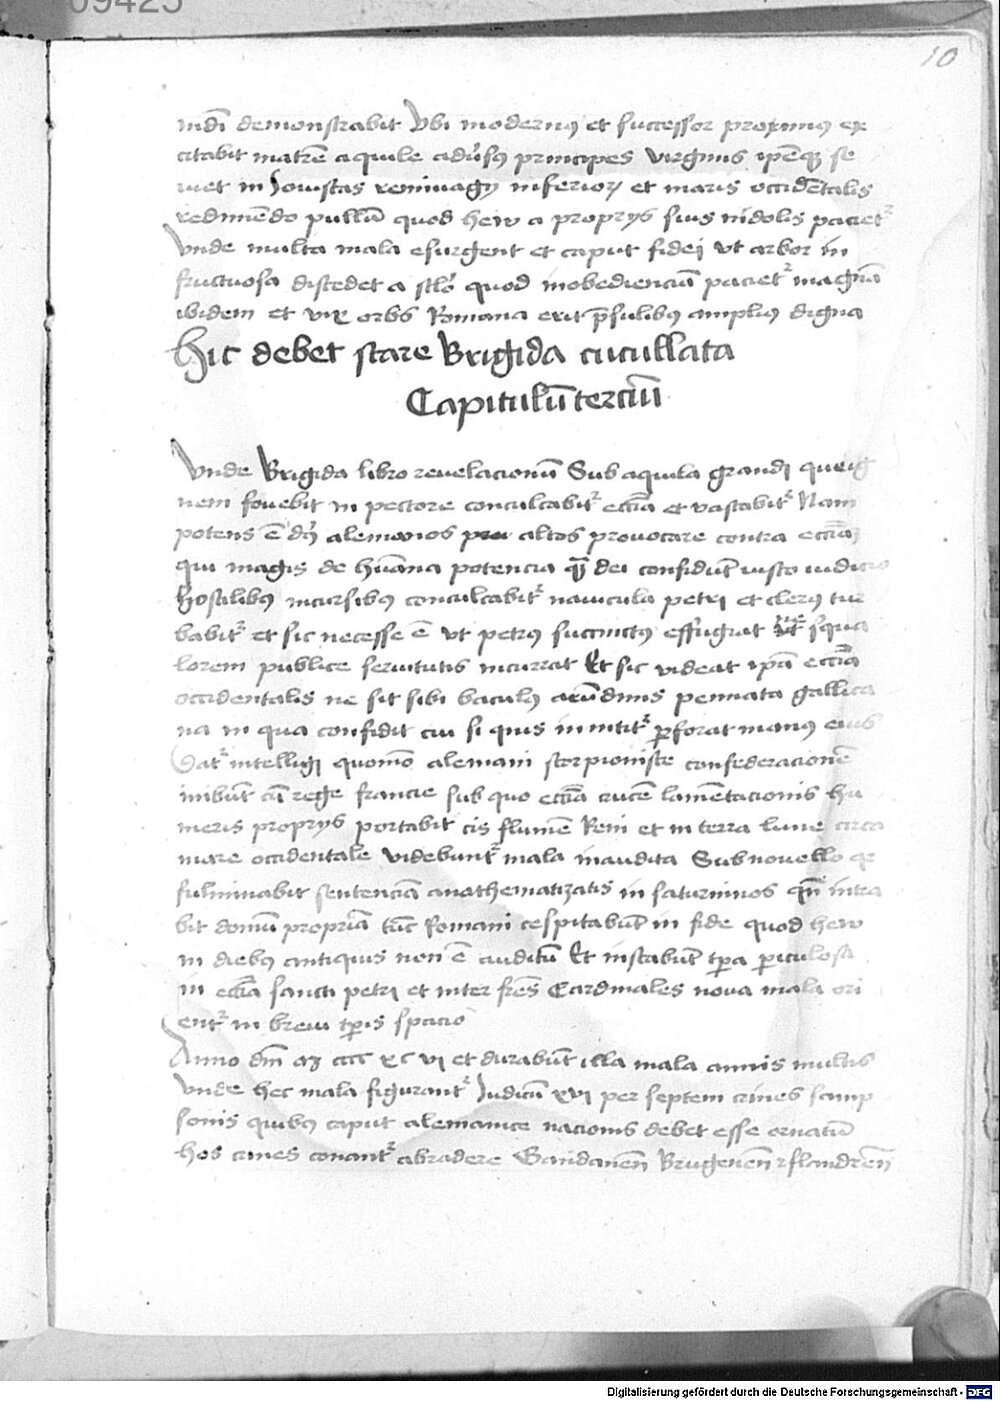 09425
10
mdī demonstrabit Vbi modernꝰ et successor proximꝰ ex
citabit matrē aquile adūsꝰ principes virginis ipēqꝫ se
uiet in Jouistas reninagꝫ inferioꝝ et maris occidētalis
redimēdo pullū quod hew a proprijs suis nidolis paciet᷑
Vnde multa mala exsurgent et caput fidei vt arbor in
fructuosa discedet a stlō quod inobedienciā paciet᷑ magnā
ibidem et vix orbis Romana erit p̄sulibꝰ ampliꝰ digna
Hic debet stare Brigida cucullata
Capitulū terciū
Vnde Brigida libro reuelacionū Sub aquila grandi que ig
nem fouebit in pectore conculcabit᷑ ecc̄ia et vastabit᷑ Nam
potens ē dꝰ alemanos altos prouocare contra ecc̄iaꝫ
qui magis de hūana potencia qꝫ dei confidūt iusto iudicio
hostilibꝰ incursibꝰ conculcabit᷑ nauicula petri et clerꝰ tur
babit᷑ et sic necesse ē vt petrꝰ succinctꝰ effugiat squa
lorem publice seruitutis incurrat Et sic videat ipā ecc̄ia
occidentalis ne sit sibi baculꝰ arūdinis pennata gallica
na in qua confidit cui si quis innitit᷑ ꝑforat manꝰ eius
Dat᷑ intelligi quomō alemani scorpioniste confederacionē
inibūt cū rege francie sub quo ecc̄ia crucē lamētacionis hu
meris proprijs portabit cis flumē Reni et in terra lune circa
mare occidentale videbunt᷑ mala inaudita Sub nouello qr
fulminabit sentenciā anathematizatis in saturninos qn̄ intra
bit domū propriā tūc Romani cespitabūt in fide quod hew
in diebꝰ antiquis non ē auditū Et instabūt tp̄a ꝑiculosa
in ecc̄ia sancti petri et inter fr̄es Cardinales noua mala ori
ent᷑ in breui tp̄is spacio
Anno dm̄ mꝫ cccc xc vi et durabūt illa mala annis multis
Vnde hec mala figurant᷑ Judicū xvi per septem crines samp
sonis quibꝰ caput alemanice nacionis debet esse ornatū
hos crines conant᷑ abradere Gandanen̄ Brugenen̄ ⁊ flandren̄
Digitalisierung gefördert durch die Deutsche Forschungsgemeinschaft - DFG